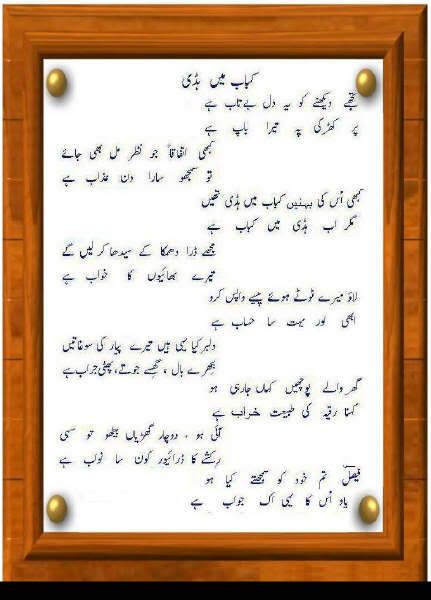 کباب میں ہڈی
تجھے دیکھنے کو یہ دل بےتاب ہے
پر کھڑکی پہ تیرا باپ ہے
کبھی اتفاقاً جو نظر مل بھی جائے
تو سمجھو سارا دن عذاب ہے
کبھی اُس کی بہنیں کباب میں ہڈی تھیں
مگر اب ہڈی میں کباب ہے
مجھے ڈرا دھمکا کے سیدھا کر لیں گے
تیرے بھائیوں کا خواب ہے
لاؤ میرے لوٹے ہوئے پیسے واپس کرو
ابھی اور بہت سا حساب ہے
دلبر کیا یہی ہیں تیرے پیار کی سوغاتیں
بکھرے بال ، گھسے جوتے، پھٹی جراب ہے
گھر والے پوچھیں کہاں جارہی ہو
کہنا رقیہ کی طبیعت خراب ہے
آئی ہو ، دوچار گھڑیاں بیٹھو تو سہی
رکشے کا ڈرائیور کون سا نواب ہے
فیصل تم خود کو سمجھتے کیا ہو
یاد اُس کا یہی اک جواب ہے